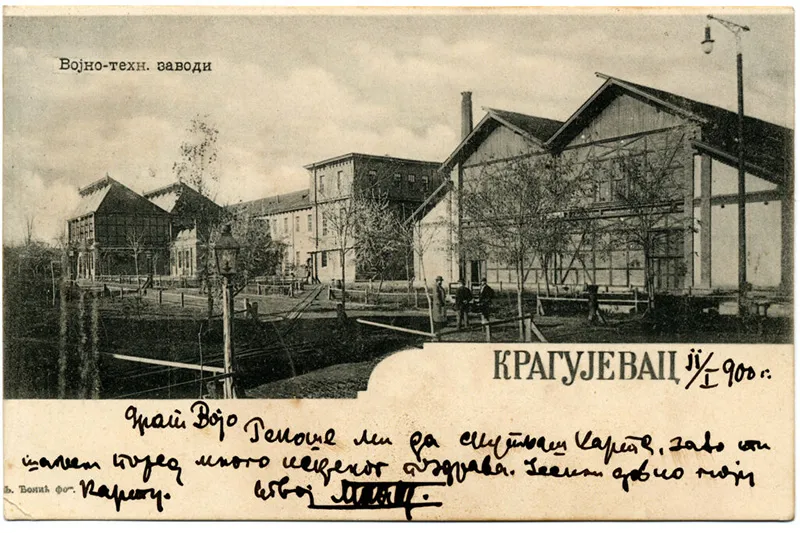 Војно-техн. заводи
КРАГУЈЕВАЦ II/I 900 г.
Драги Војо
Рекоше ми да скупљаш карте, зато ти
шаљем поред много поздрава. Јеси ли добио моју
карту. Твој
фот.